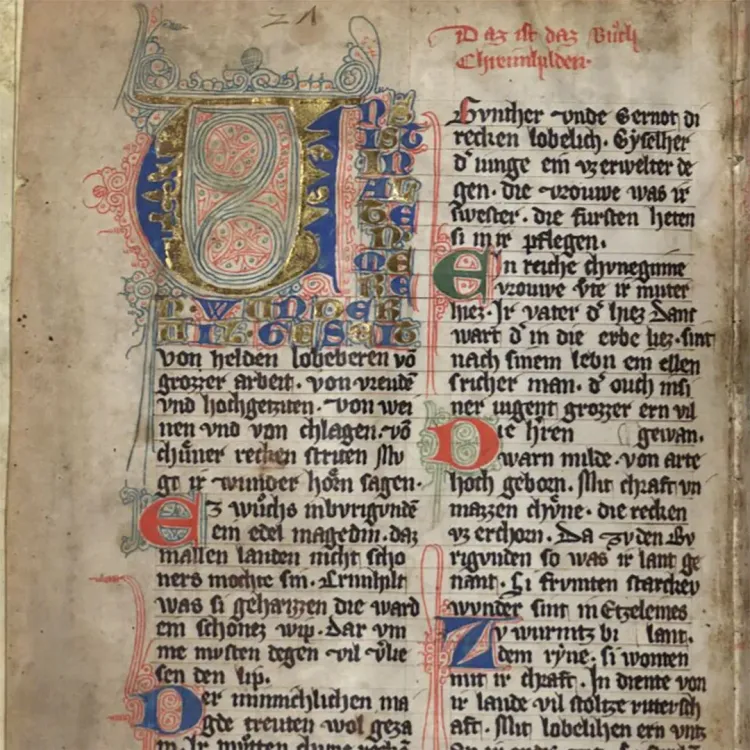 Daz iſt daz Bůch
Chreimhilden·
U NS
IST
IN
AL
TE
N
ME
RE
N · WUNDER
VIL GESEIT
von helden lobebæren võ
grozzer arbeit · von vreudē
vnd hochgetziten · von wei
nen vnd von chlagen · võ
chůner recken ſtriten Mv
gt ir wunder hőrn ſagen ·
Ez wůchs inbvrigundē
ein edel magedin · daz
inallen landen nicht ſcho
ners mochte ſin · Crimhilt
was ſi geheizzen die ward
ein ſchonez wip · Dar vm
me mvſten degen vil vͦlie
ſen den lip ·
Der minnichlichen ma
gde trevten wol geza
Gvnther vnde Gernot di
recken lobelich · Gyſelher
dˀ iunge ein vzerwelter de
gen · die vrouwe was ir
ſweſter · die fürſten heten
ſi in ir pflegen ·
Ein reiche chvneginne
vrouwe Vte ir muter
hiez · Ir vater dˀ hiez Danc
wart dˀ in die erbe liez · ſint
nach ſinem lebn ein ellen
tricher man · dˀ ouch inſi
ner iugent grozzer ern vil
gewan ·
Die h̾ren
warn milde · von arte
hoch geborn · Mit chraft vn
mazzen chv̊ne · die recken
vz erchorn · Da zv den Bv
rigvnden ſo was ir lant ge
nant · Si frvmten ſtarckev
wvnder ſint in Etzelemes
lant ·
Zv wurmtz bi
dem ryne · ſi wonten
mit ir chraft · In diente von
ir lande vil ſtoltze ritterſch
aft · Mit lobelihen ern vntz